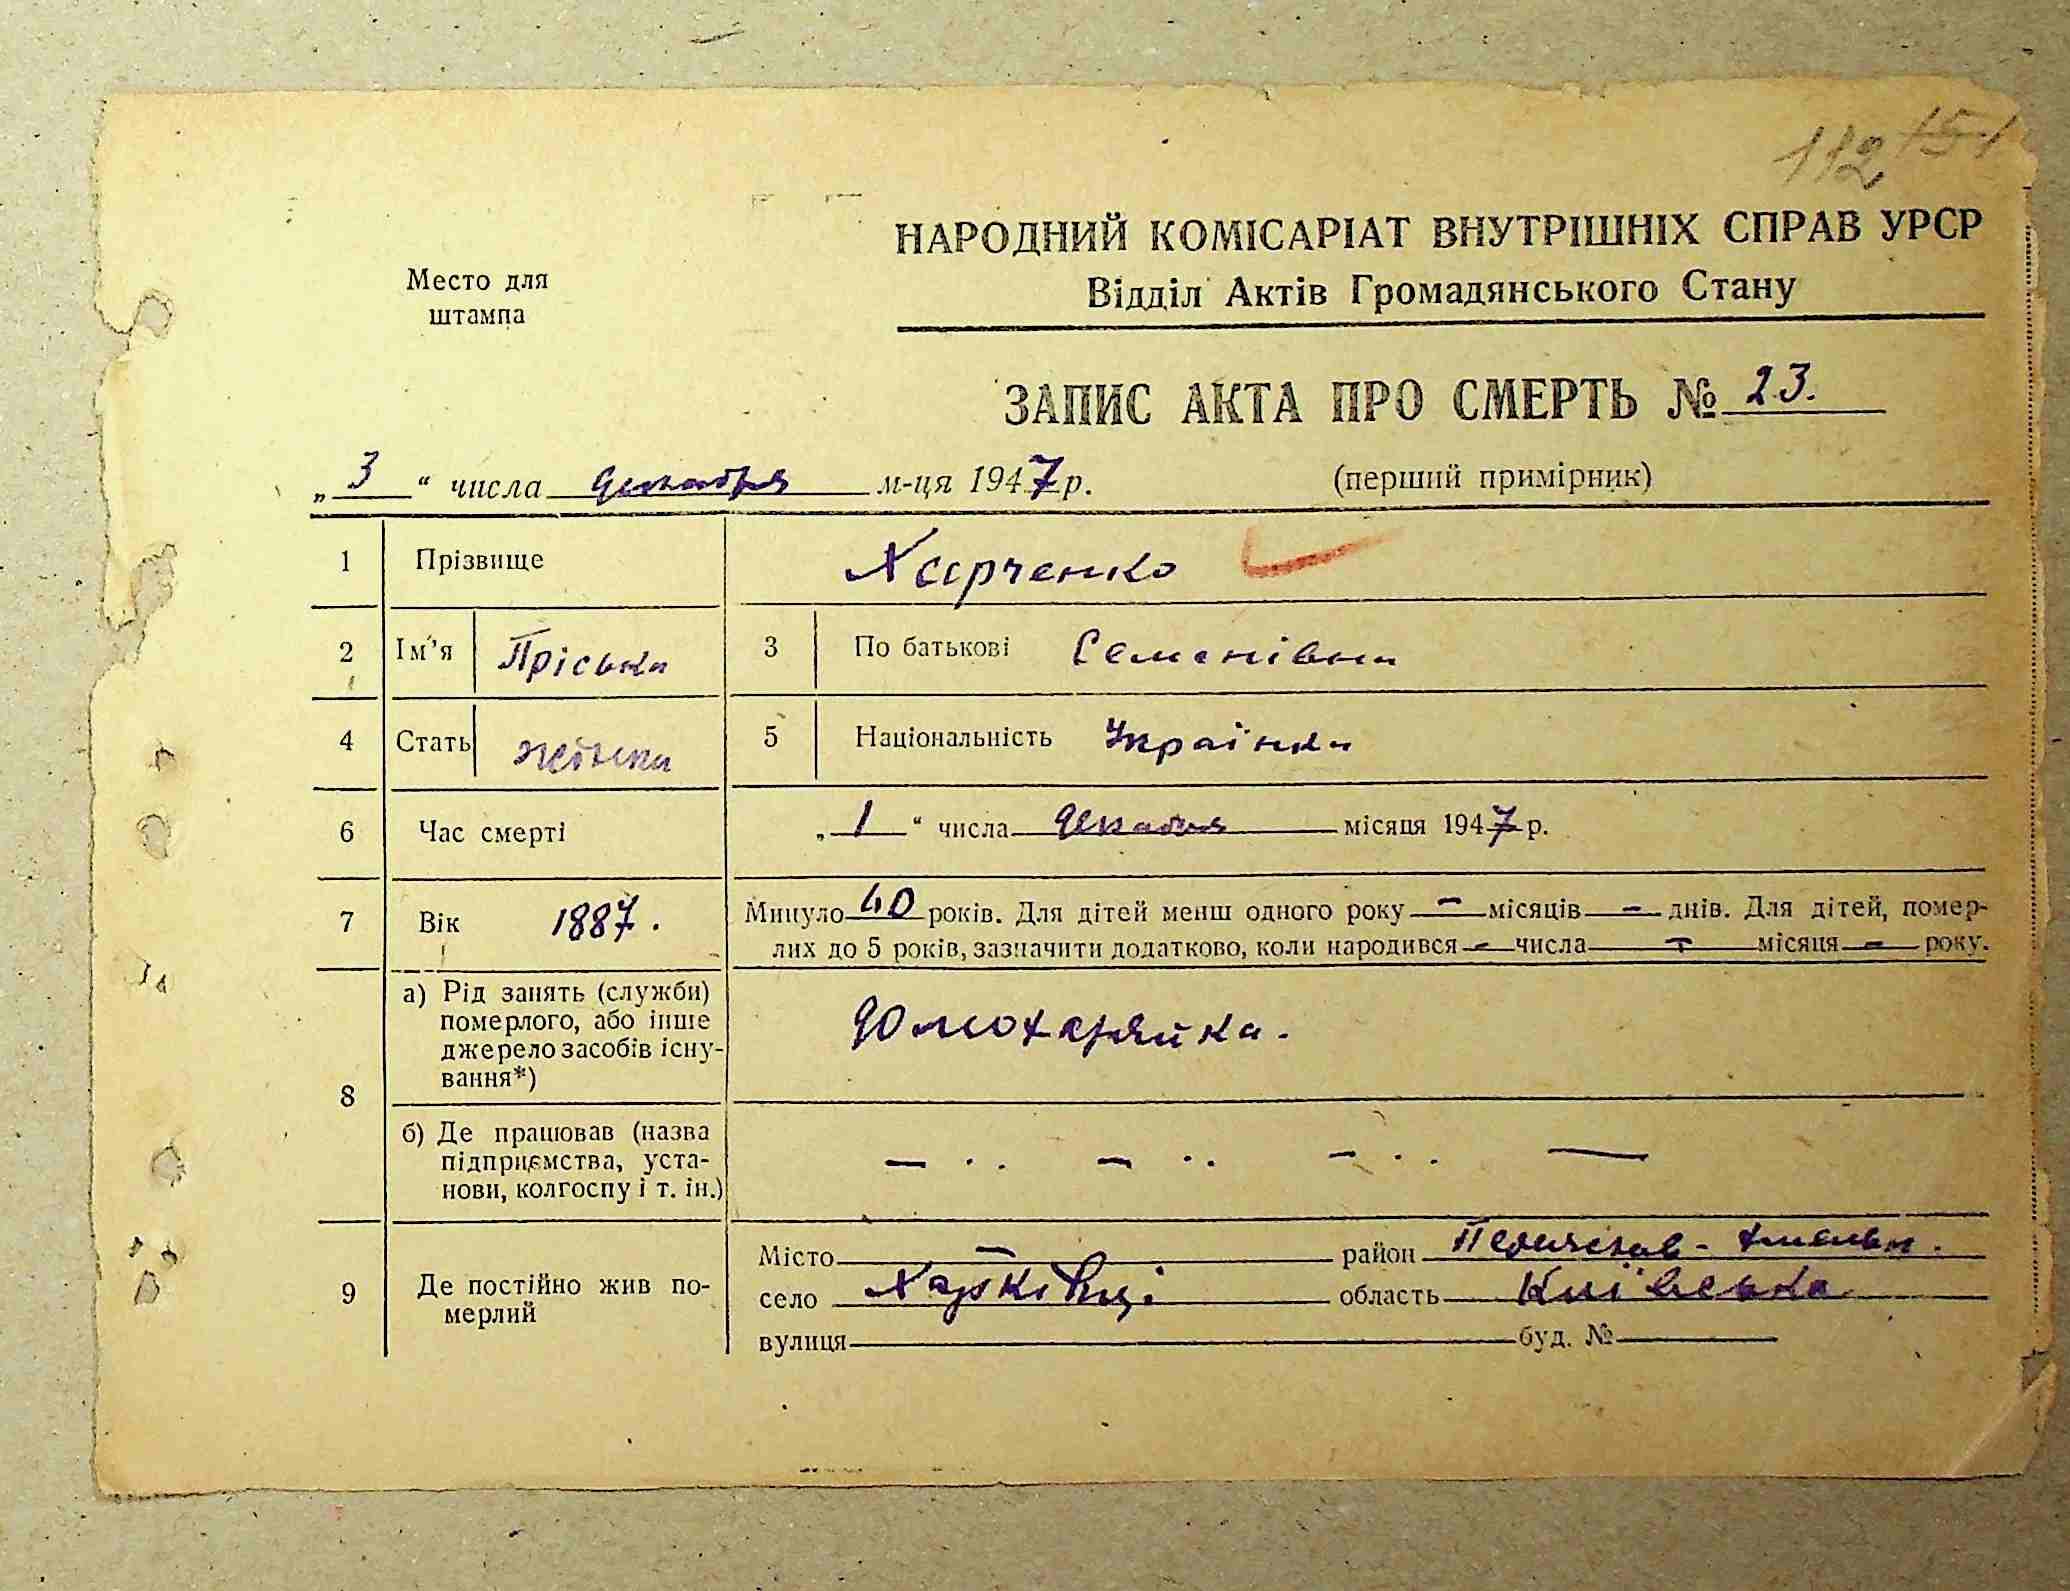 112 151
НАРОДНИЙ КОМІСАРІАТ ВНУТРІШНІХ СПРАВ УРСР
Место для
штампа
Відділ Актів Громадянського Стану
ЗАПИС АКТА ПРО СМЕРТЬ № 23.
„ 3 “ числа декабря м-ця 1947 р. (перший примірник)
1 Прізвище Харченко
2 Ім’я Пріська 3 По батькові Семенівна
4 Стать жінка 5 Національність Українка
6 Час смерті „ 1 “ числа декабря місяця 1947 р.
7 Вік 1887. Минуло 40 років. Для дітей менш одного року – місяців – днів. Для дітей, помер-
лих до 5 років, зазначити додатково, коли народився – числа – місяця – року.
8 а) Рід занять (служби)
померлого, або інше
джерело засобів існу-
вання*)
домохазяйка.
б) Де працював (назва
підприємства, уста-
нови, колгоспу і т. ін.)
9 Де постійно жив по-
мерлий
Місто — район Переяслав-Хмельн.
село Харківці область Київська
вулиця буд. №